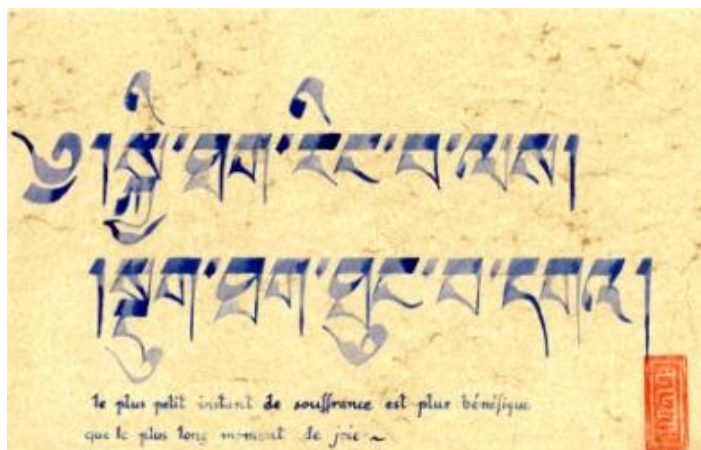 རིང་བ་ལས།
།སྡུག་ ཐུང་བ་དགའ།
le plus petit instant de souffrance est plus bénéfique
que le plus long moment de joie ~